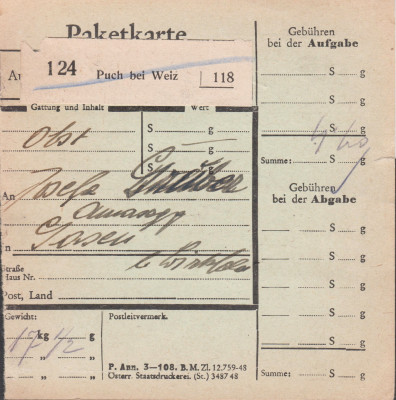 Paketkarte
Gebühren
bei der Aufgabe
124 Puch bei Weiz 118
S g
S g
S g
Summe: S g
Gattung und Inhalt Wert
Obst S g
S g
An Josefa
in Gasen
Straße
Haus Nr.
Post, Land
Gebühren
bei der Abgabe
S g
S g
S g
S g
S g
Summe: S g
Gewicht: Postleitvermerk.
17 kg 1/2 g
" "
" "
P. Ann. 3—108. B. M. Zl. 12.759-48
Österr. Staatsdruckerei. (St.) 3487 48